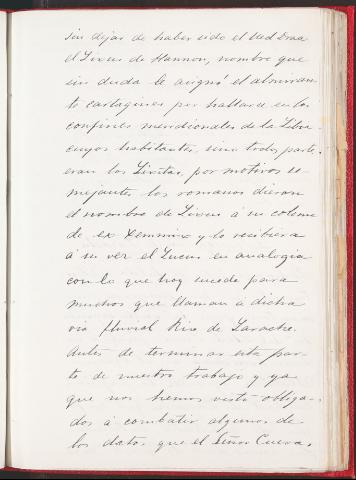 sin dejar de haber sido el Ued Draa
el Lixus de Hannon, nombre que
sin duda le asignó el almiran-
te cartaginés por hallarse en los
confines meridionales de la Libia
cuyos habitantes, en todas partes,
eran los Lixitas, por motivos se-
mejantes los romanos dieron
el nombre de Lixus á su colonia
de ex Xemmix y lo recibiera
á su vez el Lucus en analogia
con lo que hoy sucede para
muchos que llaman a dicha
via fluvial Rio de Larache.
Antes de terminar esta par-
te de nuestro trabajo y ya
que nos hemos visto obliga-
dos á combatir algunos de
los datos que el Señor Cuevas,